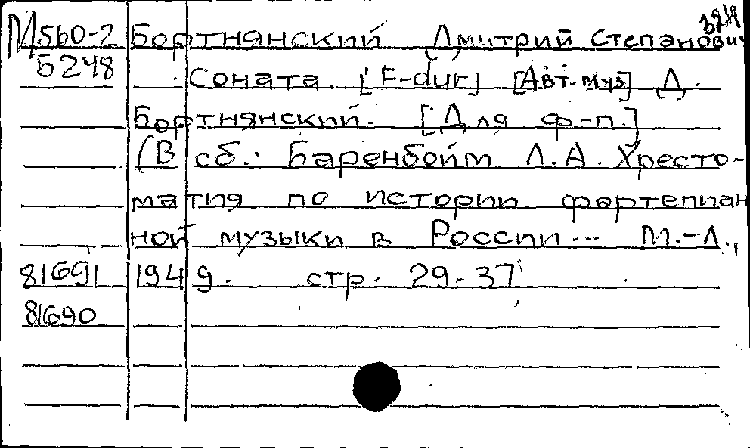 М560-2 Бортнянский Дмитрий Степанович
5248 Соната. [F-dur] [Авт. муз.] Д.
Бортнянский. [Для ф-п.]
(В сб.: Баренбойм Л.А. Хресто-
матия по истории фортепиан
ной музыки в России... М.-Л.,
81691 1949. стр. 29-37
81690